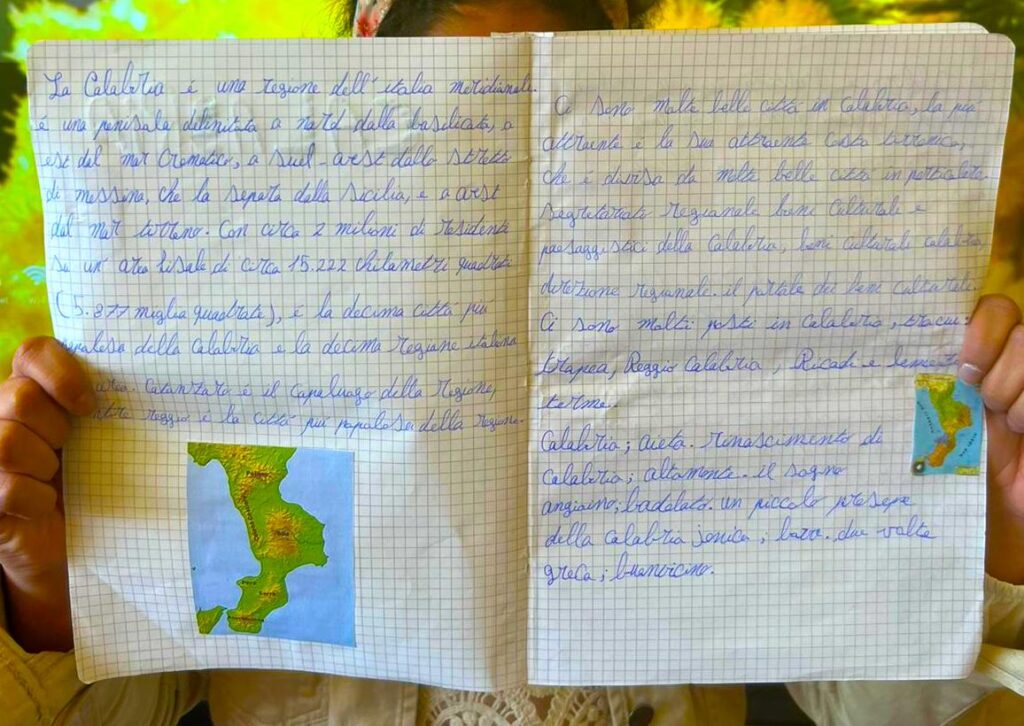 La Calabria é una regione dell'italia meridionale.
é una penisala delinitata a nord dalla basilicata, a
est dal mar Cromatico, a sud-ovest dallo stretto
di messina, che la separa dalla Sicilia, e a ovest
dal mar tirreno. Con circa 2 milioni di residenti
su un' area di circa 15.222 chilametri quadrati
(5.877 miglia quadrate), é la decima cittá piú
della Calabria e la decima regione italiana
Catanzaro é il capaluogo della regione,
reggio é la cittá piú papalosa della regione.
Ci sono molte belle cittá in Calabria, la piú
attraente é la sua attraente costa tirrenica,
che é divisa da molte belle cittá in particolare
segretariato regionale beni culturale e
paesaggistici della Calabria, beni culturale calabria,
direzione regionale. il portale dei beni culturali.
Ci sono molti posti in Calabria,
trapea, Reggio Calabria, Ricadi e
terme.
Calabria; aieta. rinascimento di
Calabria; altamonte. il sogno
angioino; badolato. un piccolo presepe
della Calabria jonica; bova. due volte
greca; buonvicino.